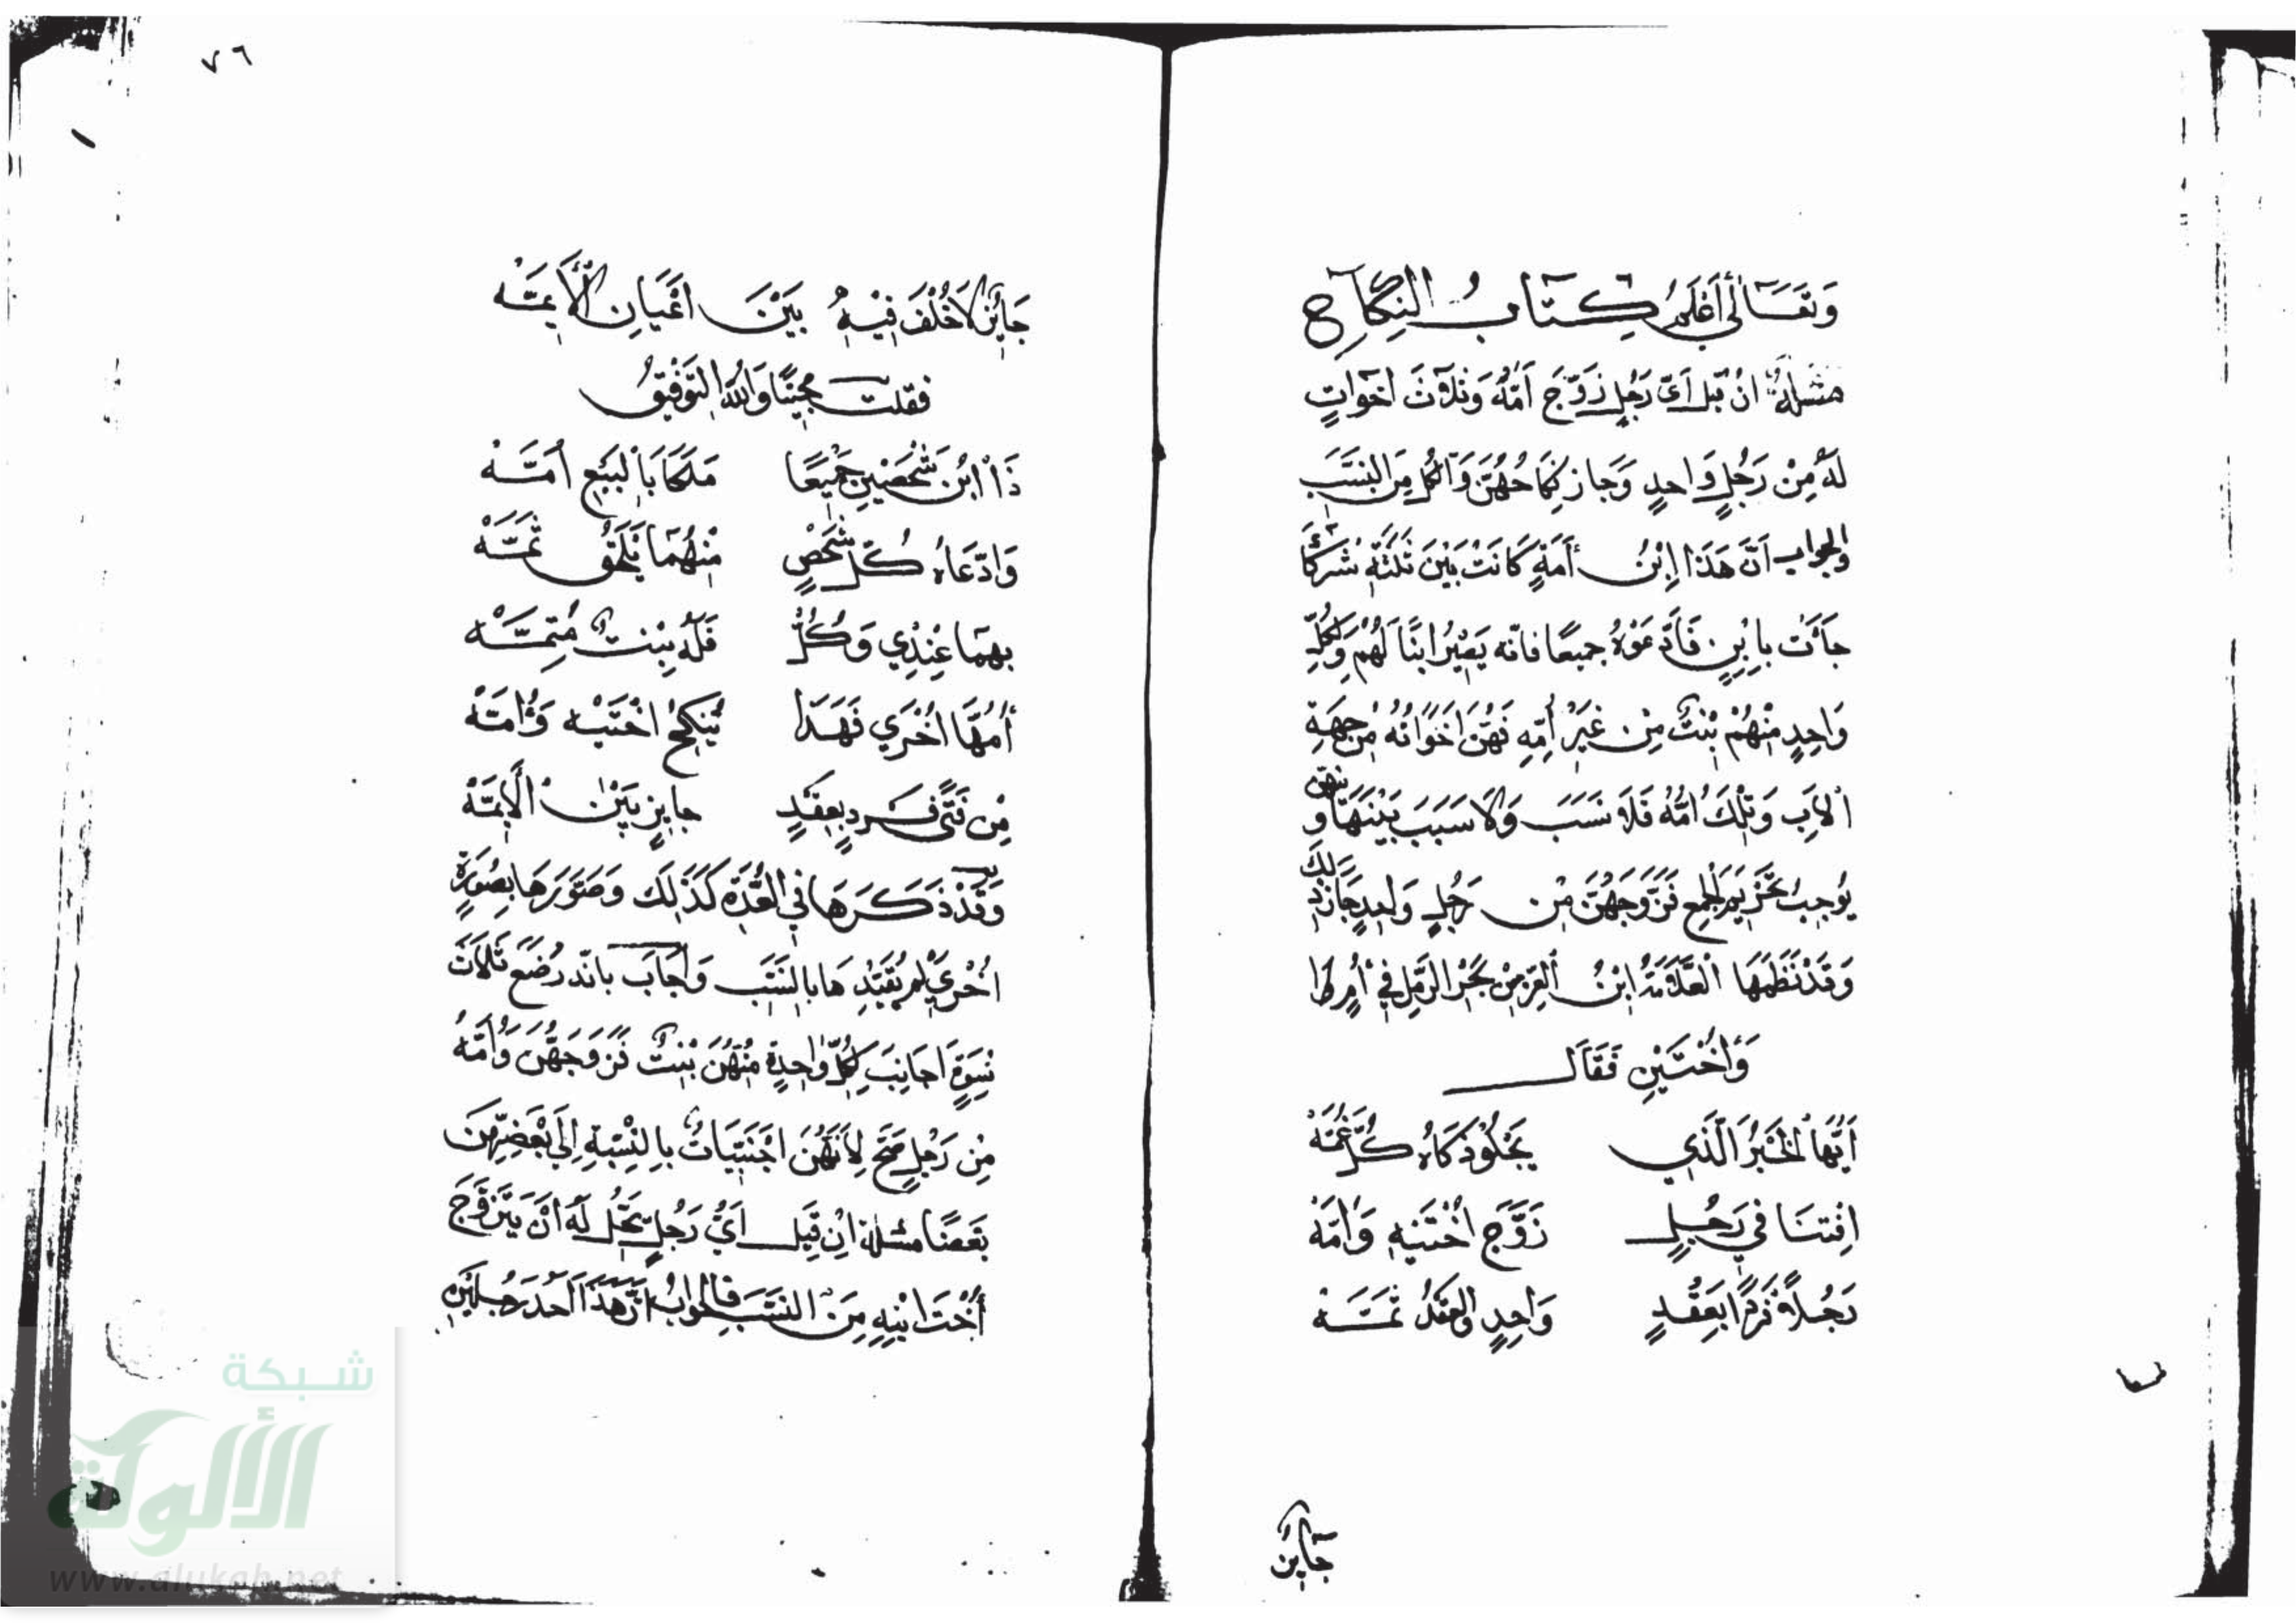 وَتَعَالَى أَعْلَمُ كِتَابُ النِكَاحِ
مَسْئَلَةٌ انْ قِيلَ اَيُّ رَجُلٍ زَوَّجَ اُمَّهُ وَثَلَاثَ اَخَوَاتٍ
لَهُ مِنْ رَجُلٍ وَاحِدٍ وَجَازَ نِكَاحُهُنَّ وَالْكُلُّ مِنَ النَسَبِ
والجواب اَنَّ هَذَا ابْنُ أَمَةٍ كَانَتْ بَيْنَ ثَلَثَةٍ شُرَكَاءَ
جَاءَتْ بِابْنٍ فَادَّعَوْهُ جميعًا فانه يَصِيْرُ ابنًا لَهُمْ وَلِكُلِّ
وَاحِدٍ مِنْهُمْ بِنْتٌ مِن غَيْرِ أُمِّهِ فَهُنَّ اَخَوَاتُهُ مِنْ جِهَةِ
الاَبِ وَتِلْكَ اُمُّهُ فَلَا نَسَبَ وَلَا سَبَبَ بَيْنَهَا وَبينهن
يُوجِبُ تَحْرِيْمَ الجَمْعِ فَزَوَّجَهُنَّ مِن رَجُلٍ وَاحِدٍ جَازَ ذلِكَ
وَقَدْ نَظَمَهَا الْعَلَّامَةُ ابْنُ الْعِزِّ مِنْ بَحْرِ الرَّمَلِ فِي أُمٍّ
وَأُخْتَيْنِ فَقَالَ
اَيُّهَا الْحَبْرُ الَّذِي يَجْلُو ذَكَاهُ كُلَّ غُمَّهْ
افْتِنَا فِي رَجُلٍ زَوَّجَ اُخْتَيْهِ وَاُمَّهْ
رَجُلًا فَرْدًا بِعَقْدٍ وَاحِدٍ والعَقْدُ تَمَّهْ
جَايِز
٧٦
جَايِزٌ لَا خُلْفَ فِيْهِ بَيْنَ اعْيَانِ الْأَيِمَّهْ
فقلت مجيبًا وَبِاللهِ التَّوْفِيْقُ
ذَا ابْنُ شَخْصَيْنِ جَمِيْعًا مَلَكَا بَالْبَيْعِ اَمَهْ
وَادَّعَاهُ كُلُّ شَخْصٍ مِنْهُمَا يَلْحَقُ ثَمَّهْ
بِهِمَا عِنْدِي وَكُلٌّ فَلَهُ بِنْتٌ مُتِمَّهْ
أُمُّهَا اُخْرَى فَهَذَا يُنْكِحُ اخْتَيْهِ وَاُمَّهْ
مِن فَتًى فَرْدٍ بِعَقْدٍ جايزٍ بَيْنَ الْأَيِمَّهْ
وَقَدْ ذَكَرَهَا فِي الْعُدَّةِ كَذَلِكَ وَصَوَّرَهَا بِصُورَةٍ
اُخْرَى لم يُقَيِّدْهَا بِالنَسَبِ وَاَجَابَ بانه رَضَعَ ثَلَاثَ
نِسْوَةٍ اَجَانِبَ لِكُلِّ وَاحِدَةٍ مِنْهُنَّ بِنْتٌ فَزَوَّجَهُنَّ وَاُمَّهُ
مِن رَجُلٍ صَحَّ لِاَنَّهُنَّ اجْنَبِيَّاتٌ بِالنِّسْبَةِ اِلَى بَعْضِهِنَّ
بَعْضًا مسئلة انْ قِيْلَ اَيُّ رَجُلٍ يَحِلُّ لَهُ اَنْ يَتَزَوَّجَ
أُخْتَ ابْنِهِ مِنَ النَسَبِ فالجوابُ انَّ هَذَا اَحَدُ رَجُلَيْنِ
شبكة
الألوكة
www.alukah.net